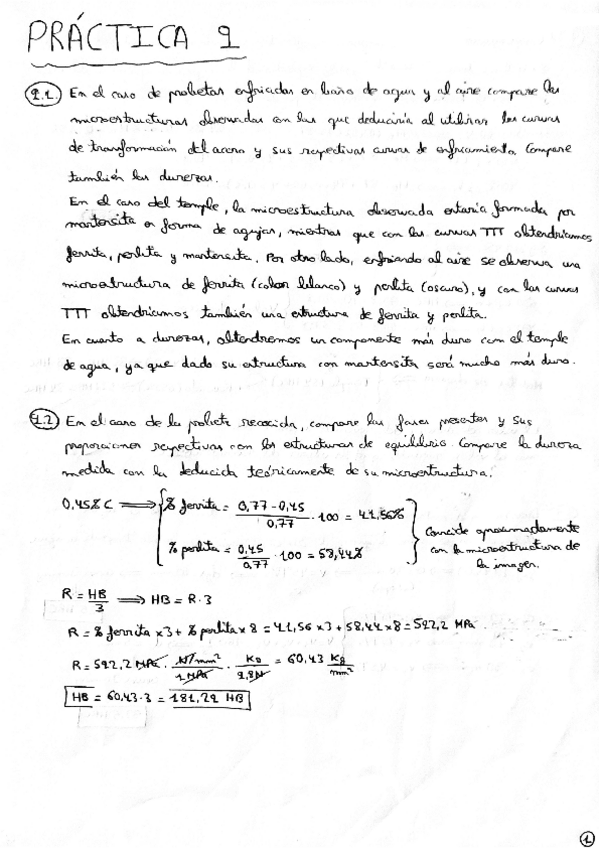 PRÁCTICA 1
1.1 En el caso de probetas enfriadas en baño de agua y al aire compare las
microestructuras observadas con las que deduciría al utilizar las curvas
de transformación del acero y sus respectivas curvas de enfriamiento. Compare
también las durezas.
En el caso del temple, la microestructura observada estaría formada por
martensita en forma de agujas, mientras que con las curvas TTT obtendríamos
ferrita, perlita y martensita. Por otro lado, enfriando al aire se observa una
microestructura de ferrita (color blanco) y perlita (oscuro), y con las curvas
TTT obtendríamos también una estructura de ferrita y perlita.
En cuanto a durezas, obtendremos un componente más duro con el temple
de agua, ya que dado su estructura con martensita será mucho más duro.
1.2 En el caso de la probeta recocida, compare las fases presentes y sus
proporciones respectivas con las estructuras de equilibrio. Compare la dureza
medida con la deducida teóricamente de su microestructura.
0,45% C ⟹ { % ferrita = (0,77 - 0,45)/0,77 · 100 = 41,56%
% perlita = 0,45/0,77 · 100 = 58,44% }
Coincide aproximadamente
con la microestructura de
la imagen.
R = HB/3 ⟹ HB = R · 3
R = % ferrita x 3 + % perlita x 8 = 41,56 x 3 + 58,44 x 8 = 592,2 MPa
R = 592,2 MPa · N/mm²/1 MPa · Kg/9,8N = 60,43 Kg/mm²
HB = 60,43 · 3 = 181,29 HB
1